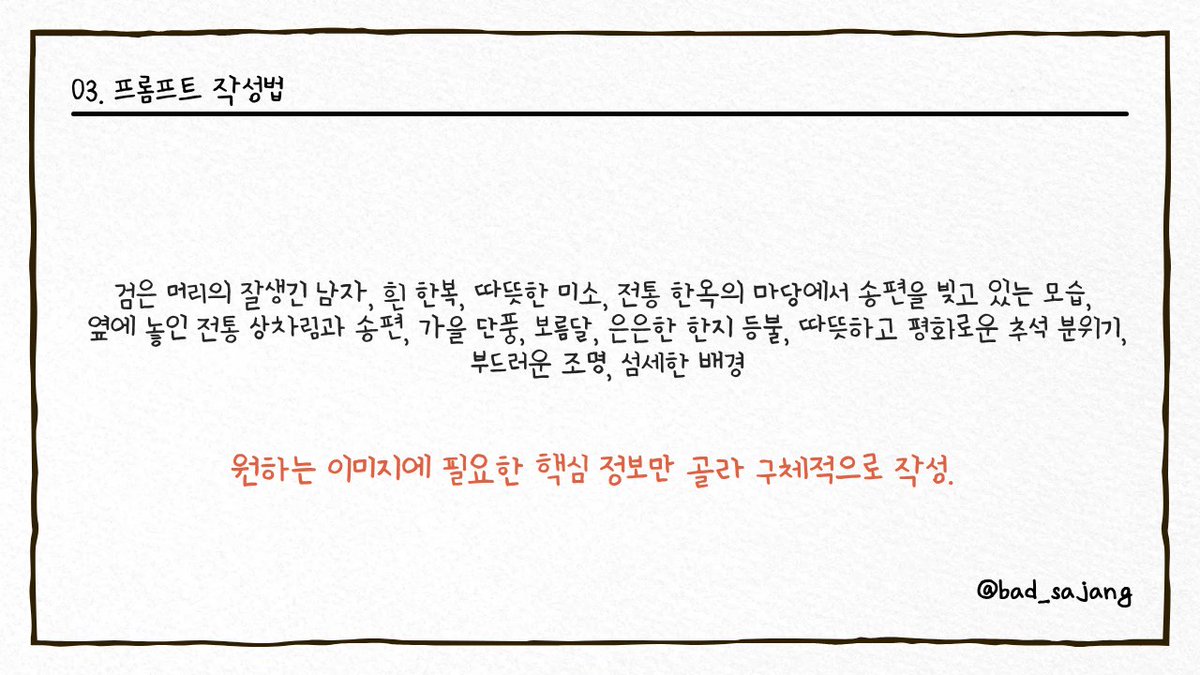 03. 프롬프트 작성법
검은 머리의 잘생긴 남자, 흰 한복, 따뜻한 미소, 전통 한옥의 마당에서 송편을 빚고 있는 모습,
옆에 놓인 전통 상차림과 송편, 가을 단풍, 보름달, 은은한 한지 등불, 따뜻하고 평화로운 추석 분위기,
부드러운 조명, 섬세한 배경
원하는 이미지에 필요한 핵심 정보만 골라 구체적으로 작성.
@bad_sajang